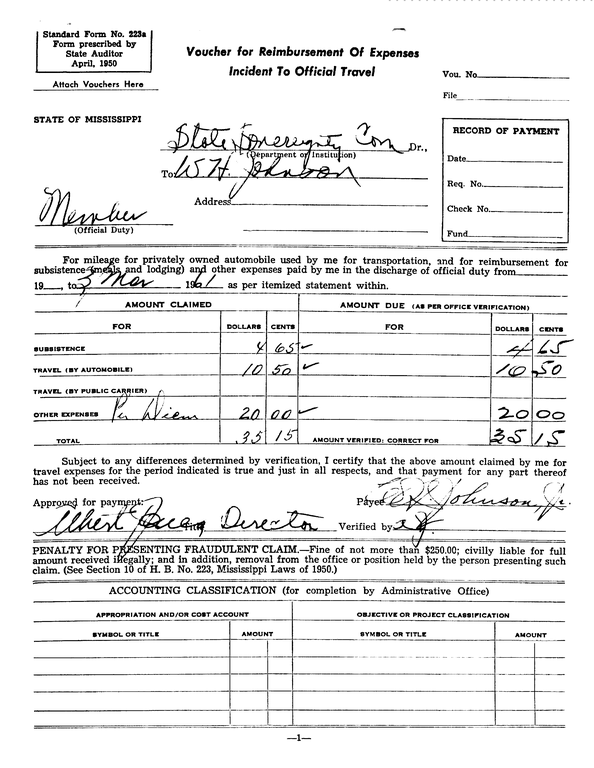 Standard Form No. 223a
Form prescribed by
State Auditor
April, 1950
Attach Vouchers Here
Voucher for Reimbursement Of Expenses
Incident To Official Travel
Vou. No.
File
STATE OF MISSISSIPPI
State Sovereignty Com Dr.,
(Department or Institution)
To W. H. Johnson
Address
Member
(Official Duty)
RECORD OF PAYMENT
Date
Req. No.
Check No.
Fund
For mileage for privately owned automobile used by me for transportation, and for reimbursement for
subsistence (meals and lodging) and other expenses paid by me in the discharge of official duty from
19 , to 3 Mar 1961 as per itemized statement within.
AMOUNT CLAIMED AMOUNT DUE (AS PER OFFICE VERIFICATION)
FOR DOLLARS CENTS FOR DOLLARS CENTS
SUBSISTENCE 4 65 ✓ 4 65
TRAVEL (BY AUTOMOBILE) 10 50 ✓ 10 50
TRAVEL (BY PUBLIC CARRIER)
OTHER EXPENSES Per Diem 20 00 ✓ 20 00
TOTAL 35 15 AMOUNT VERIFIED: CORRECT FOR 35 15
Subject to any differences determined by verification, I certify that the above amount claimed by me for
travel expenses for the period indicated is true and just in all respects, and that payment for any part thereof
has not been received.
Approved for payment: Payee Johnson, Jr.
Albert Jones Director Verified by
PENALTY FOR PRESENTING FRAUDULENT CLAIM.—Fine of not more than $250.00; civilly liable for full
amount received illegally; and in addition, removal from the office or position held by the person presenting such
claim. (See Section 10 of H. B. No. 223, Mississippi Laws of 1950.)
ACCOUNTING CLASSIFICATION (for completion by Administrative Office)
APPROPRIATION AND/OR COST ACCOUNT OBJECTIVE OR PROJECT CLASSIFICATION
SYMBOL OR TITLE AMOUNT SYMBOL OR TITLE AMOUNT
—1—